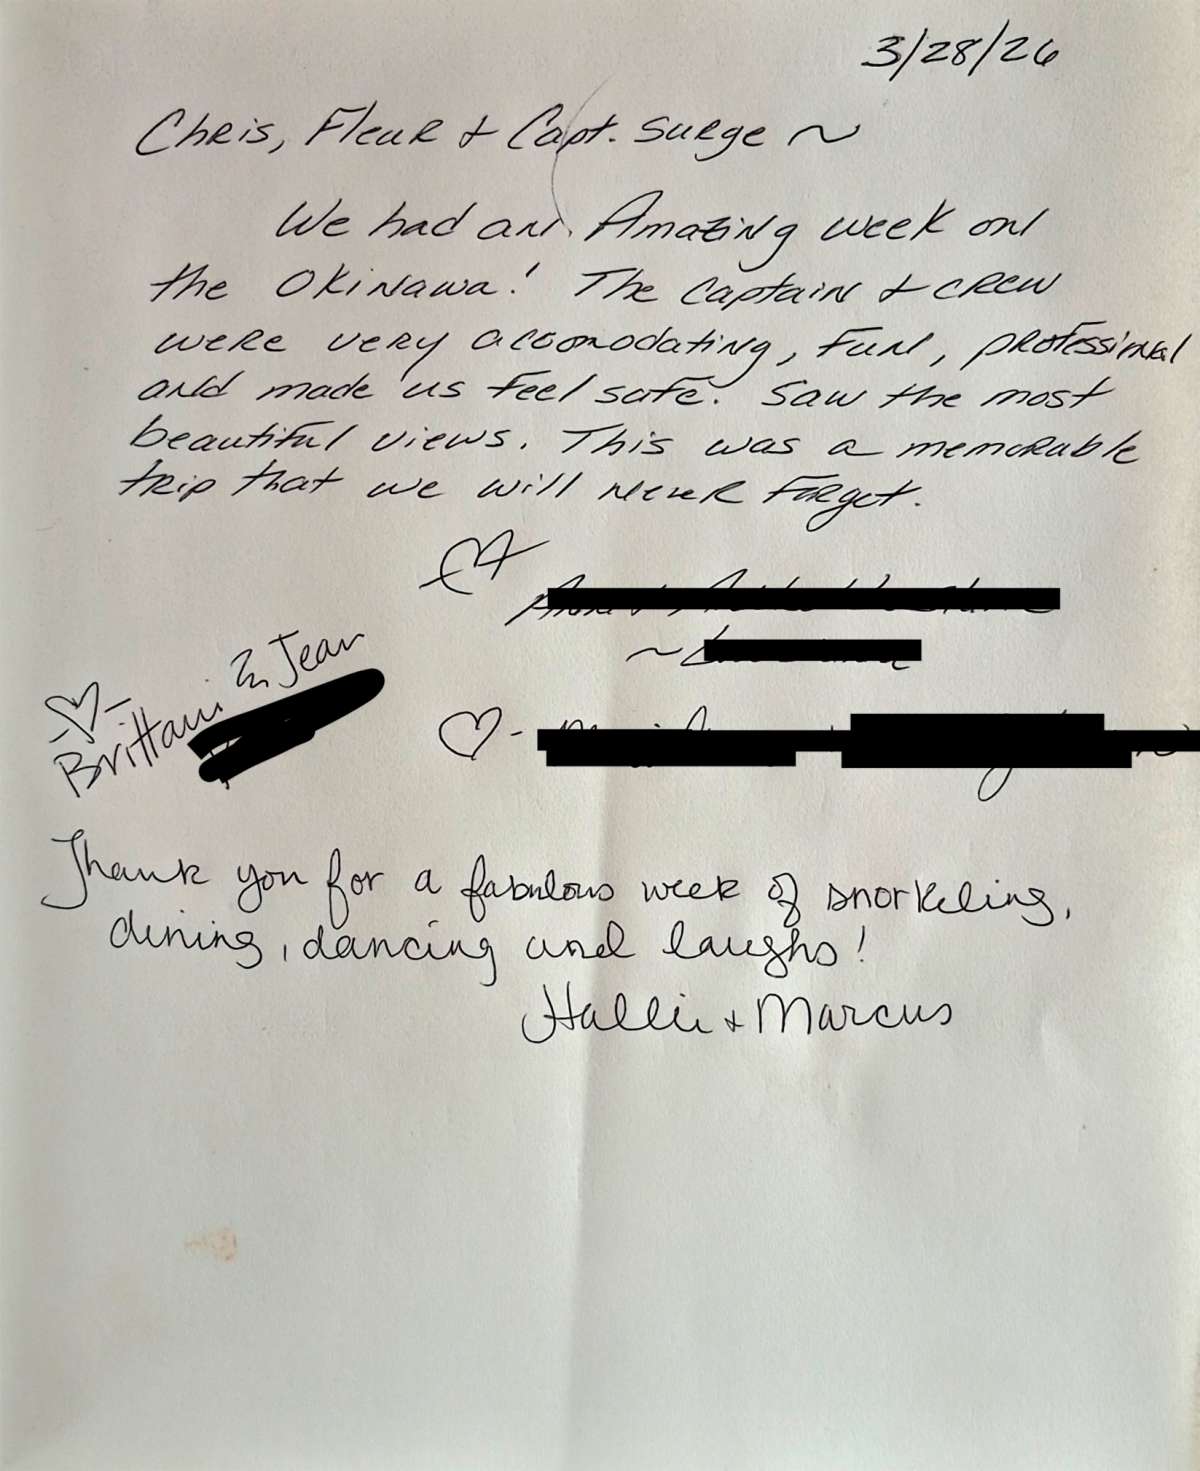 3/28/26
Chris, Fleur & Capt. Surge ~
We had an Amazing week on
the Okinawa! The Captain & crew
were very accomodating, fun, professional
and made us feel safe. Saw the most
beautiful views. This was a memorable
trip that we will never forget.
Brittani & Jean
Thank you for a fabulous week of snorkeling,
dining, dancing and laughs!
Hallie + Marcus